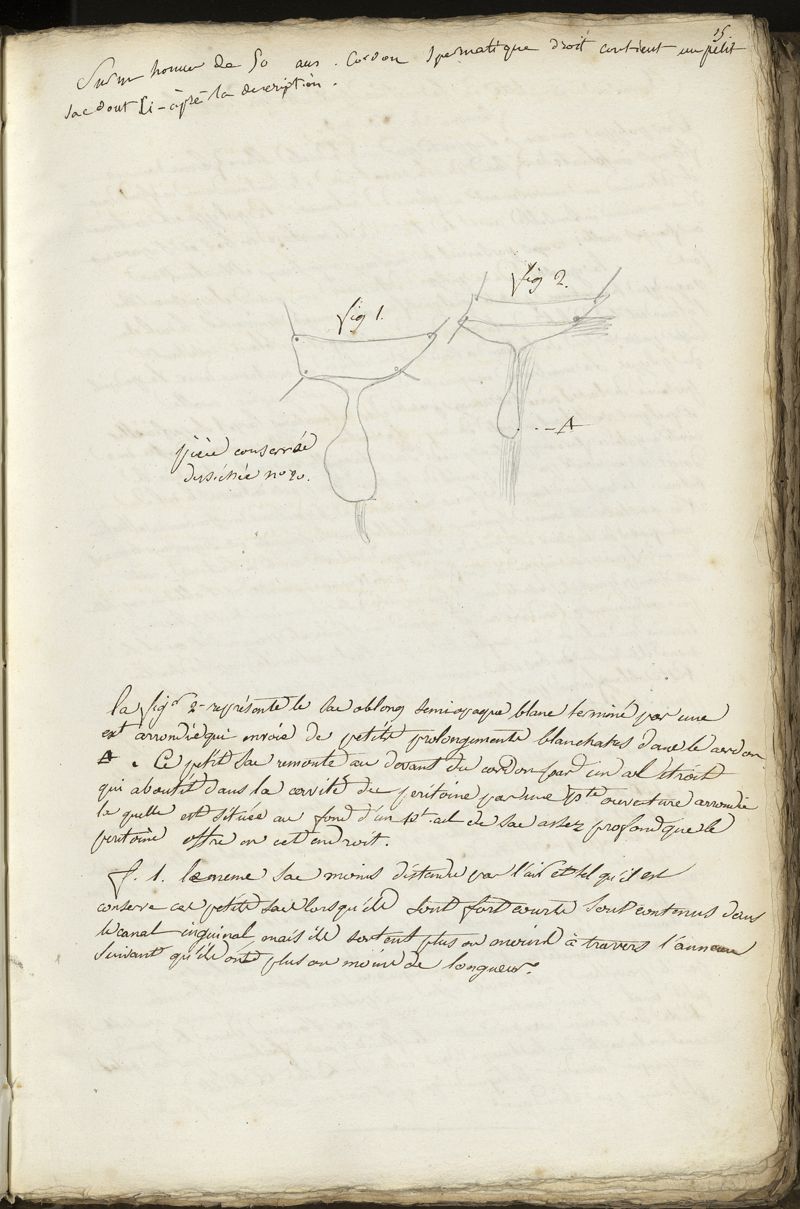 15.
Sur un homme de 50 ans. Cordon Spermatique droit contient un petit
sac dont Ci-après la description.
fig 1.
fig 2.
A
pièce conservée
desséchée no 20.
la figre 2 représente le sac oblong semiopaque blanc terminé par une
ext arrondie qui envoie de petits prolongements blanchatres dans le cordon
A. Ce petit sac remonte au devant du cordon par un col étroit
qui aboutit dans la cavité du péritoine par une pte ouverture arrondie
la quelle est située au fond d'un cul de sac assez profond que le
peritoine offre en cet endroit.
f. 1. le meme sac moins distendu par l'air et tel qu'il est
conservé ces petits sacs lorsqu'ils sont fort courts sont contenus dans
le canal inguinal mais ils sortent plus ou moins à travers l'anneau
suivant qu'ils ont plus ou moins de longueur.